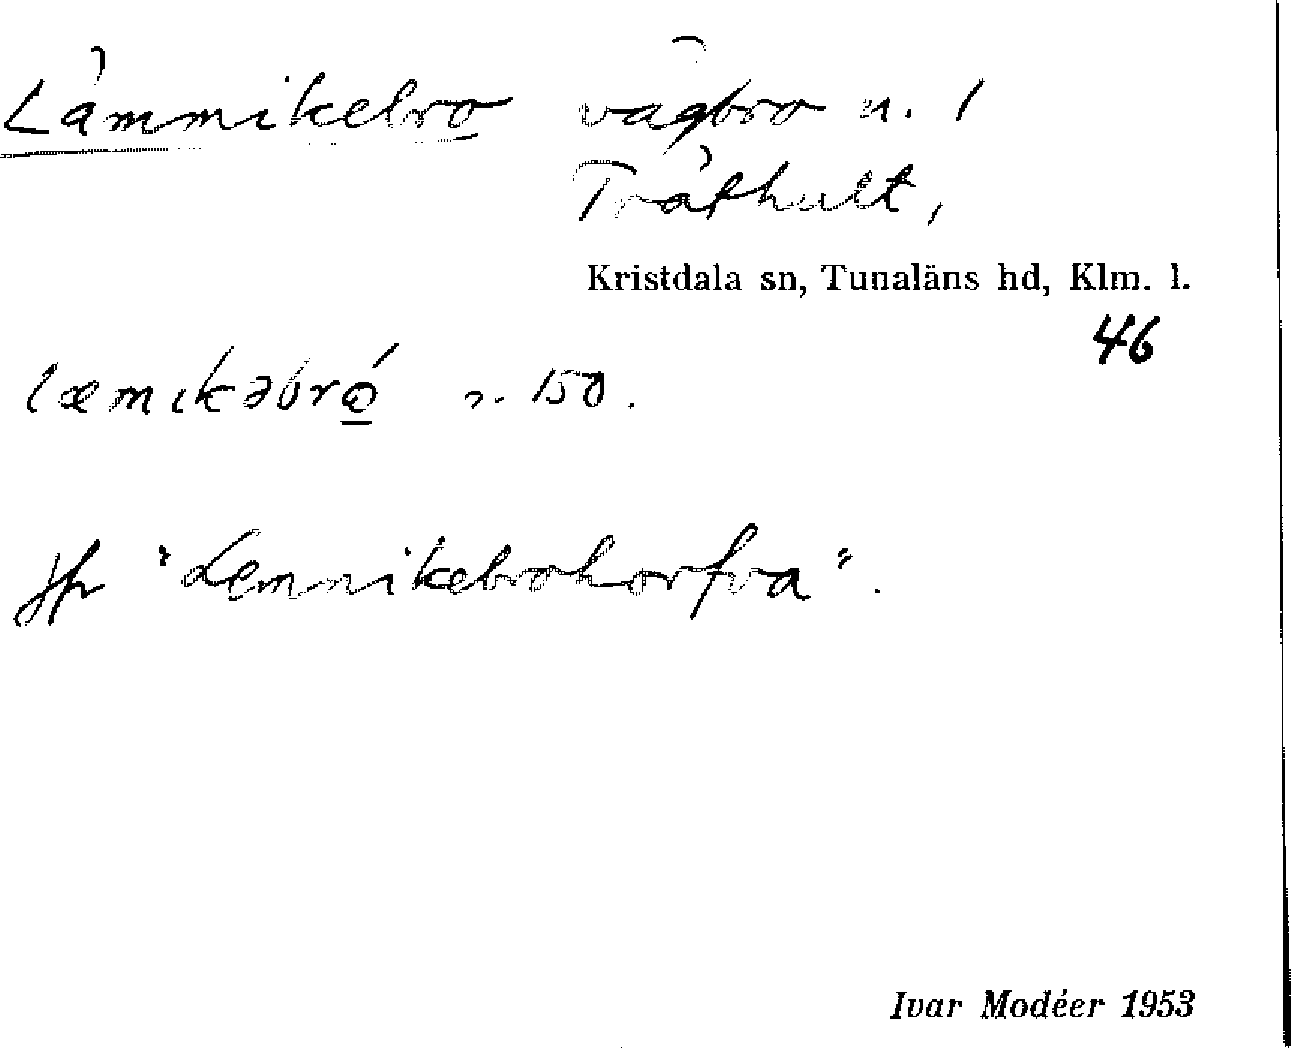 Lämmikebro vägbro n. 1
Träthult,
Kristdala sn, Tunaläns hd, Klm. l.
46
læmikəbró n. 150.
Jfr "Lemnikebrohorfva".
Ivar Modéer 1953